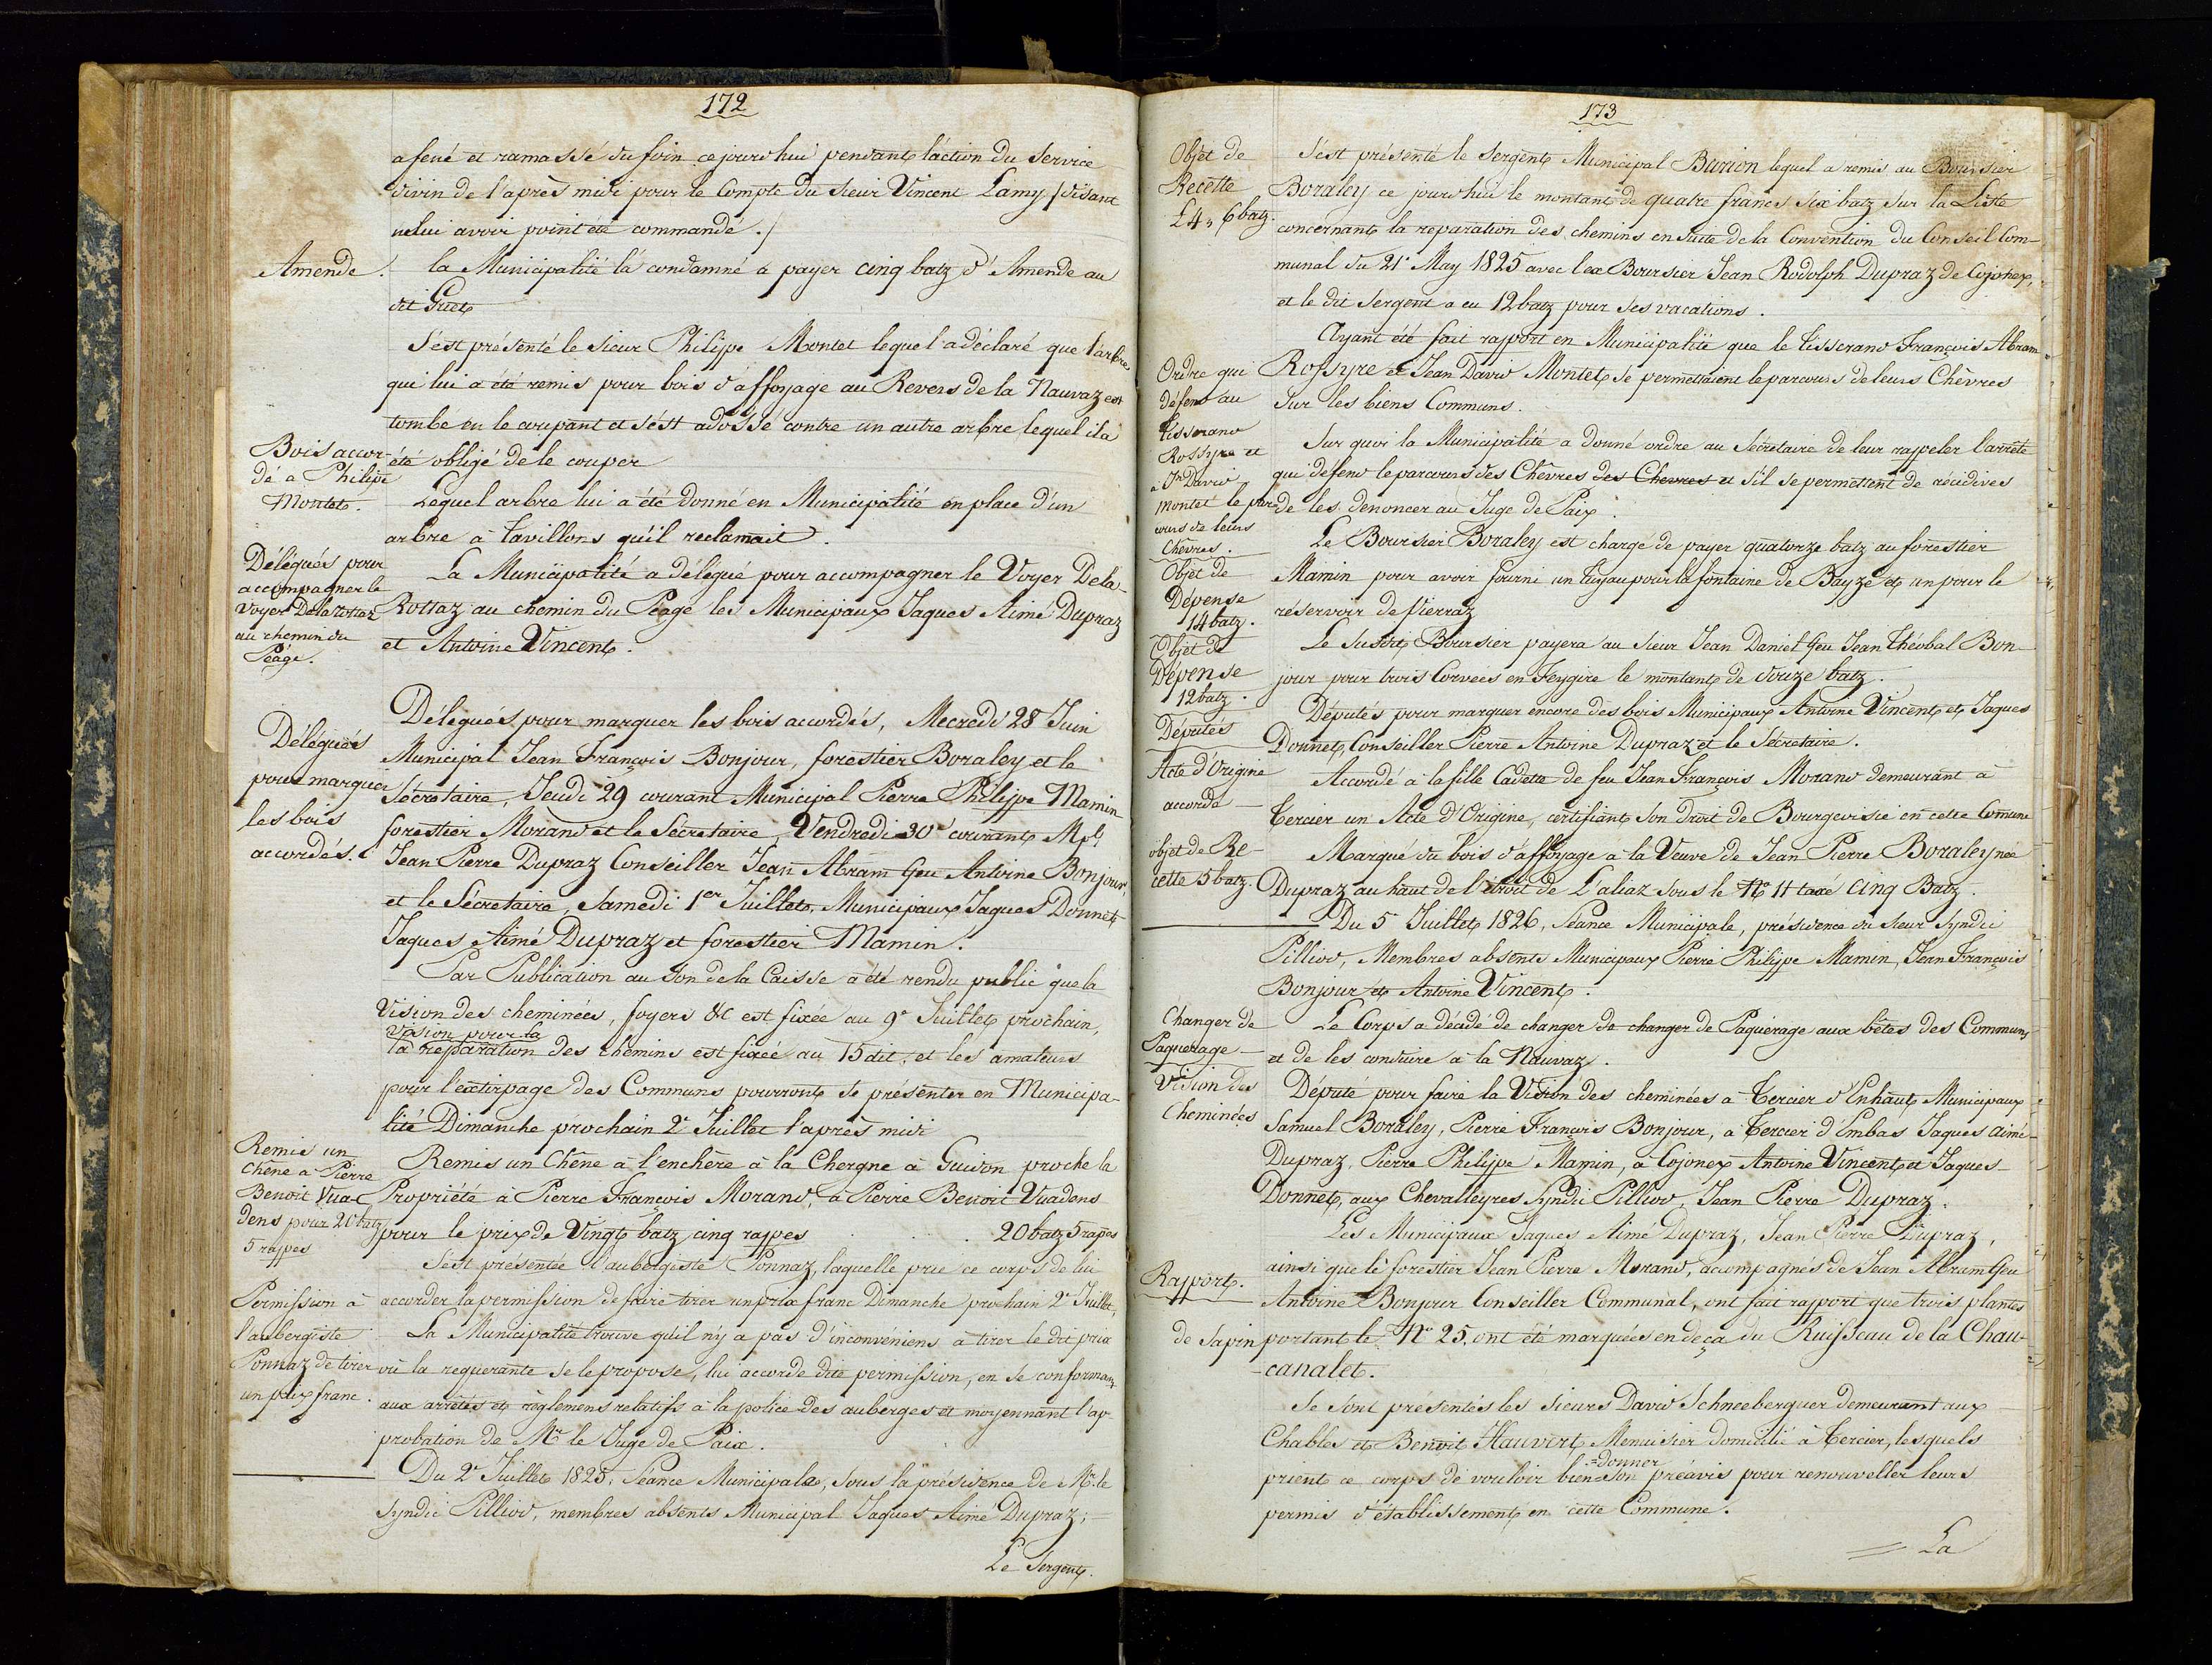 172
afené et ramassé du foin ce jourd'hui pendant l'action du Service
divin de l'après midi pour le Compte du Sieur Vincent Lamy /disant
ne lui avoir point été commandé./
Amende.
la Municipalité l'a condamné à payer cinq batz d'Amende au
dit Guet
S'est présenté le Sieur Philippe Montet lequel a déclaré que l'arbre
qui lui a été remis pour bois d'affoyage au Revers de la Nauvaz est
tombé en le coupant et s'est adossé contre un autre arbre lequel il a
été obligé de le couper
Bois accor-
dé a Philipe
Montet.
Lequel arbre lui a été donné en Municipalité en place d'un
arbre à tavillons qu'il reclamait.
Délégués pour
accompagner le
Voyer Delarottaz
au chemin du
Péage.
La Municipalité a délégué pour accompagner le Voyer Dela-
Rottaz au chemin du Péage les Municipaux Jaques Aimé Dupraz
et Antoine Vincent.
Délégués
pour marquer
les bois
accordés.
Délégués pour marquer les bois accordés, Mecredi 28e Juin
Municipal Jean François Bonjour, forestier Boraley et le
Sécretaire, Jeudi 29 courant Municipal Pierre Philippe Mamin
forestier Morand et le Sécretaire, Vendredi 30e courant Mpl
Jean Pierre Dupraz Conseiller Jean Abram feu Antoine Bonjour,
et le Sécretaire, Samedi 1er Juillet, Municipaux Jaques Donnet
Jaques Aimé Dupraz et forestier Mamin.
Par Publication au son de la Caisse a été rendu public que la
Vision des cheminées, foyers &c est fixée au 9e Juillet prochain,
vision pour la
la reparation des chemins est fixée au 15 dit; et les amateurs
pour l'extirpage des Communs pourront se présenter en Municipa-
lité Dimanche prochain 2e Juillet l'après midi
Remis un
chêne à Pierre
Benoit Vua-
dens pour 20 batz
5 rappes
Remis un Chêne à l'enchère à la Chergne à Guidon proche la
Propriété à Pierre François Morand, à Pierre Benoit Vuadens
pour le prix de Vingt batz cinq rappes . . . 20 batz 5 rapes
S'est présentée l'aubergiste Ponnaz, laquelle prie ce corps de lui
accorder la permission de faire tirer un prix franc Dimanche prochain 2e Juillet,
Permission à
l'aubergiste
Ponnaz de tirer
un prix franc.
La Municipalité trouve qu'il n'y a pas d'inconvéniens à tirer le dit prix
où la requerante se le propose, lui accorde dite permission, en se conformant
aux arrêtés et règlemens relatifs à la police des auberges et moyennant l'ap-
probation de Mr le Juge de Paix.
Du 2e Juillet 1825, Séance Municipale, sous la présidence de Mr. le
Syndic Pilliod, membres absents Municipal Jaques Aimé Dupraz; =
Le Sergent.
173
Objet de
Recette
£4,, 6 batz.
S'est présenté le Sergent Municipal Burion lequel a remis au Boursier
Boraley ce jourd'hui le montant de quatre francs six batz sur la Liste
concernant la reparation des chemins ensuite de la Convention du Conseil Com-
munal du 21e May 1825 avec l'ex Boursier Jean Rodolph Dupraz de Cojonex,
et le dit Sergent a eu 12 batz pour ses vacations.
Ordre qui
défend au
tisserand
Rossyre et
à Jn David
Montet le par-
cours de leurs
Chèvres.
Ayant été fait rapport en Municipalité que le tisserand François Abram
Rossyre et Jean David Montet se permettaient le parcours de leurs Chèvres
sur les biens Communs.
Sur quoi la Municipalité a donné ordre au Sécretaire de leur rappeler l'arrêté
qui défend le parcours des Chèvres des Chevres et s'il se permettent de récidives
de les denoncer au Juge de Paix.
Objet de
Dépense
14 batz.
Le Boursier Boraley est chargé de payer quatorze batz au forestier
Mamin pour avoir fourni un tuyau pour la fontaine de Bayze et un pour le
réservoir de Pierraz
Objet de
Dépense
12 batz.
Le Susdit Boursier payera au Sieur Jean Daniel feu Jean Théobal Bon-
jour pour trois Corvées en Feygire le montant de douze batz.
Députés
Députés pour marquer encore des bois Municipaux Antoine Vincent et Jaques
Donnet, Conseiller Pierre Antoine Dupraz et le Sécretaire.
Acte d'Origine
accordé
Accordé à la fille Cadette de feu Jean François Morand demeurant à
Tercier un Acte d'Origine, certifiant son droit de Bourgeoisie en cette Comune
objet de Re-
cette 5 batz
Marqué du bois d'affoyage à la Veuve de Jean Pierre Boraley née
Dupraz au haut de l'étroit de Laliaz sous le No 11 taxé Cinq Batz.
Du 5e Juillet 1826, Séance Municipale, présidence du Sieur Syndic
Pilliod, Membres absents Municipaux Pierre Philippe Mamin, Jean François
Bonjour et Antoine Vincent.
Changer de
Paquerage
Le Corps a décidé de changer de changer de Paquérage aux bêtes des Communs
et de les conduire à la Nauvaz.
Vision des
Cheminées
Député pour faire la Vision des cheminées à Tercier d'Enhaut Municipaux
Samuel Boraley, Pierre François Bonjour, à Tercier d'Embas Jaques Aimé
Dupraz, Pierre Philippe Mamin, à Cojonex Antoine Vincent et Jaques
Donnet, aux Chevalleyres Syndic Pilliod, Jean Pierre Dupraz.
Rapport.
Les Municipaux Jaques Aimé Dupraz, Jean Pierre Dupraz,
ainsi que le forestier Jean Pierre Morand, accompagnés de Jean Abram feu
Antoine Bonjour Conseiller Communal, ont fait rapport que trois plantes
de Sapin portant le No 25, ont été marquées en deça du Ruisseau de la Chau-
-canalet.
Se sont presentés les Sieurs David Schneeberguer demeurant aux
Chables et Benoit Hauvirt Menuisier domicilié à Tercier, lesquels
=donner
prient ce corps de vouloir bien=son préavis pour renouveller leurs
permis d'établissement en cette Commune.
= La